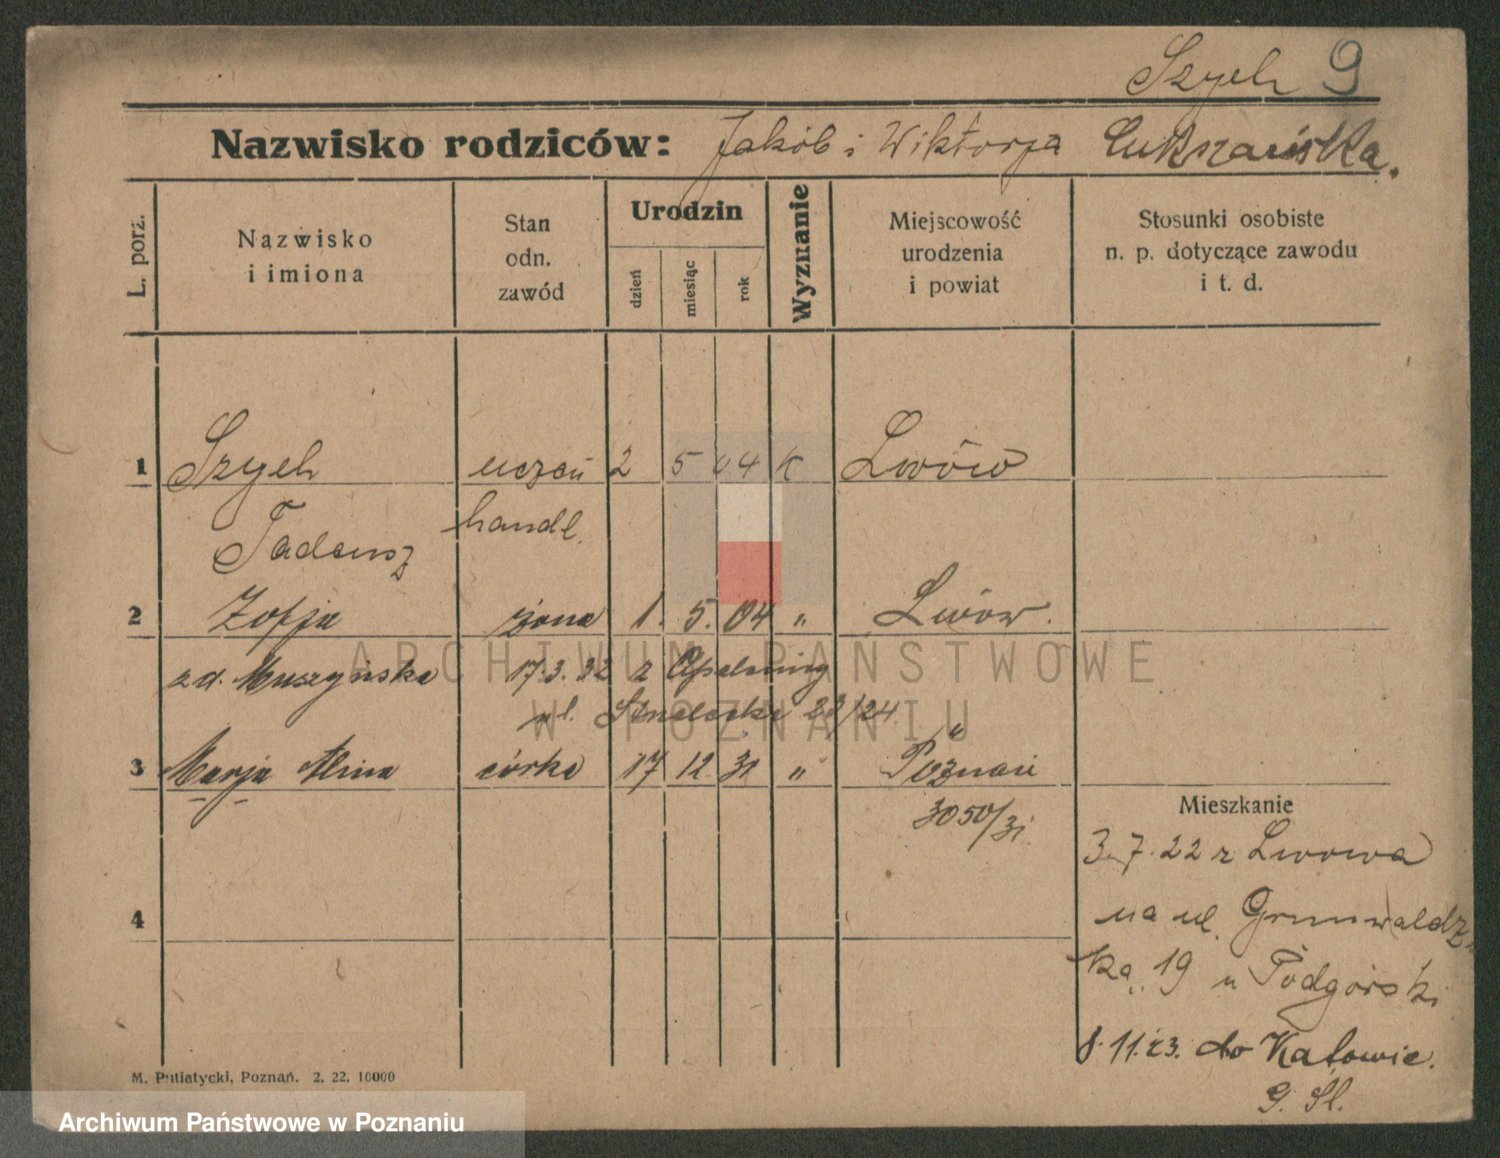 Szych 9
Nazwisko rodziców: Jakób i Wiktorja
L. porz.
Nazwisko
i imiona
Stan
odn.
zawód
Urodzin
dzień
miesiąc
rok
Wyznanie
Miejscowość
urodzenia
i powiat
Stosunki osobiste
n. p. dotyczące zawodu
i t. d.
1 Szych uczeń 2 5 04 K Lwów
Tadeusz handl.
2 Zofja żona 1. 5. 04 " Lwów.
zd. Muszyńska 17.3.32 z
ul. 23/24
"
3 Marja Alina córka 17 12 31 " Poznań
3050/31
Mieszkanie
3.7.22 z Lwowa
na ul. Grunwaldz
ką 19 u Podgórski
4
8.11.23. do Katowic.
G. Śl.
M. Putiatycki, Poznań. 2. 22. 10000
ARCHIWUM PAŃSTWOWE
W POZNANIU
Archiwum Państwowe w Poznaniu